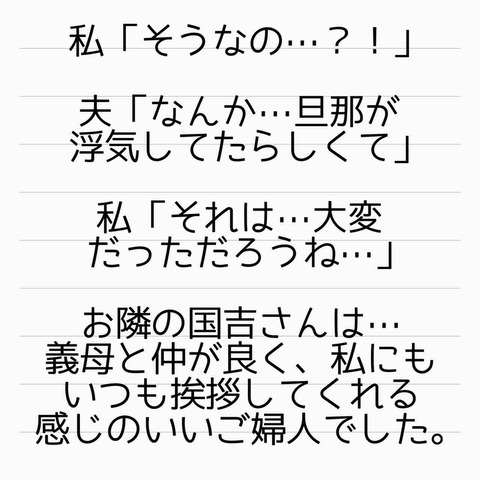 私「そうなの…？！」
夫「なんか…旦那が
浮気してたらしくて」
私「それは…大変
だっただろうね…」
お隣の国吉さんは…
義母と仲が良く、私にも
いつも挨拶してくれる
感じのいいご婦人でした。